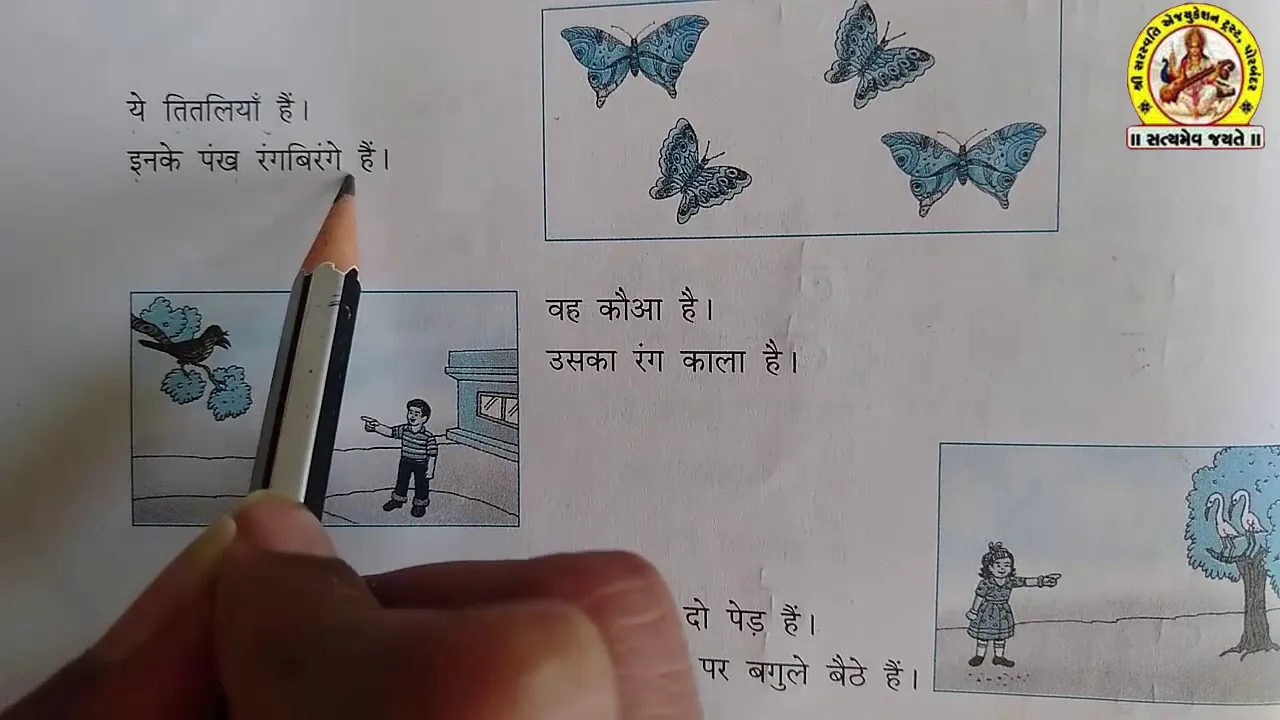 ये तितलियाँ हैं।
इनके पंख रंगबिरंगे हैं।
वह कौआ है।
उसका रंग काला है।
दो पेड़ हैं।
पर बगुले बैठे हैं।
શ્રી સરસ્વતિ એજ્યુકેશન ટ્રસ્ટ, પોરબંદર
॥ સત્યમેવ જયતે ॥